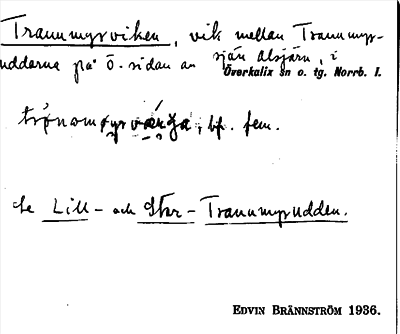 Tranumyrviken, vik mellan Tranumyr-
uddarna på Ö. sidan av sjön Alsjärv, i
Överkalix sn o. tg. Norrb. l.
bf. fem.
se Lill- och Stor-Tranumyrudden.
EDVIN BRÄNNSTRÖM 1936.